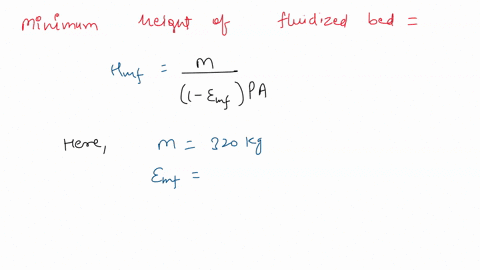 Minimum height of fluidized bed =
Hmf = m / (1 - Emf) PA
Here, m = 320 kg
Emf =